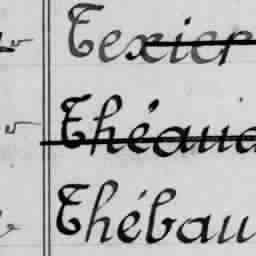 Texier
Théaud
Thébau